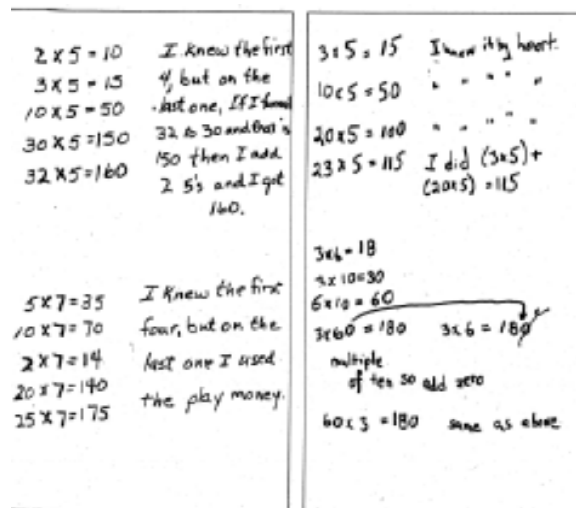 2 x 5 = 10
3 x 5 = 15
10 x 5 = 50
30 x 5 = 150
32 x 5 = 160
I knew the first
4, but on the
last one, If I turned
32 to 30 and that's
150 then I add
2 5's and I got
160.
5 x 7 = 35
10 x 7 = 70
2 x 7 = 14
20 x 7 = 140
25 x 7 = 175
I knew the first
four, but on the
last one I used
the play money.
3 x 5 = 15 I knew it by heart.
10 x 5 = 50 " " " " "
20 x 5 = 100 " " " " "
23 x 5 = 115 I did (3x5) +
(20x5) = 115
3x6 = 18
3 x 10 = 30
6 x 10 = 60
3x60 = 180 3 x 6 = 180
multiple
of ten so add zero
60 x 3 = 180 same as above